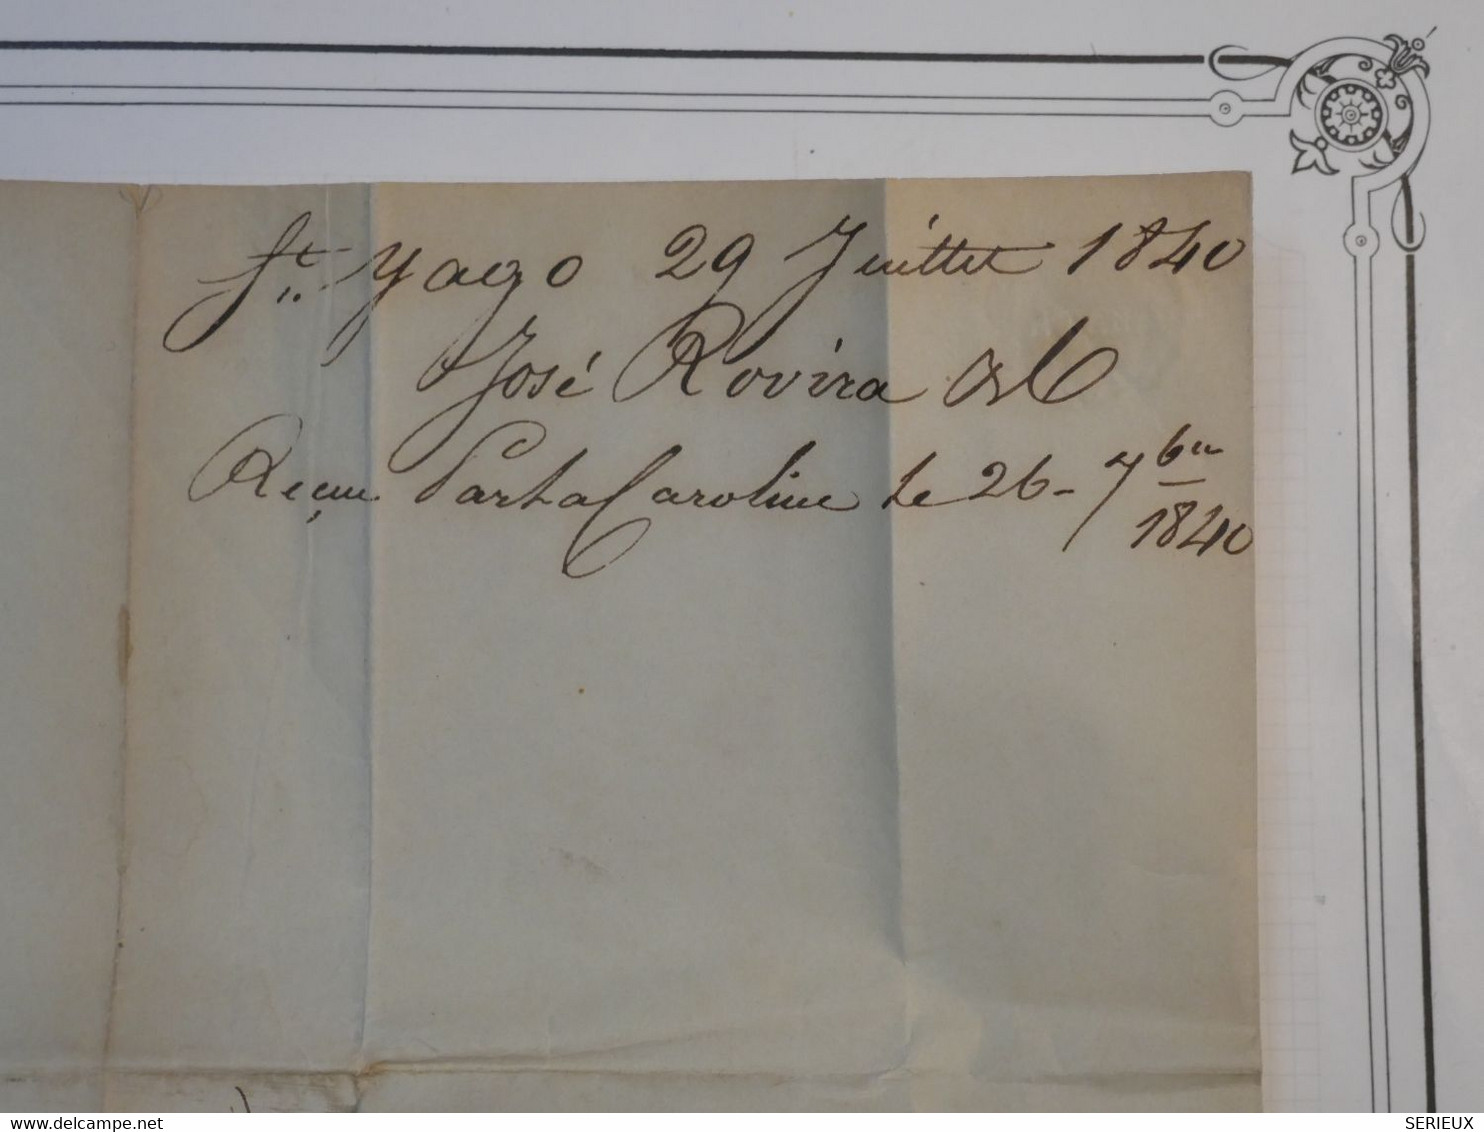 St. Yago 29 Juillet 1840
José Rovira & C
Reçue Par la Caroline le 26 - 7bre
1840
www.delcampe.net
SERIEUX